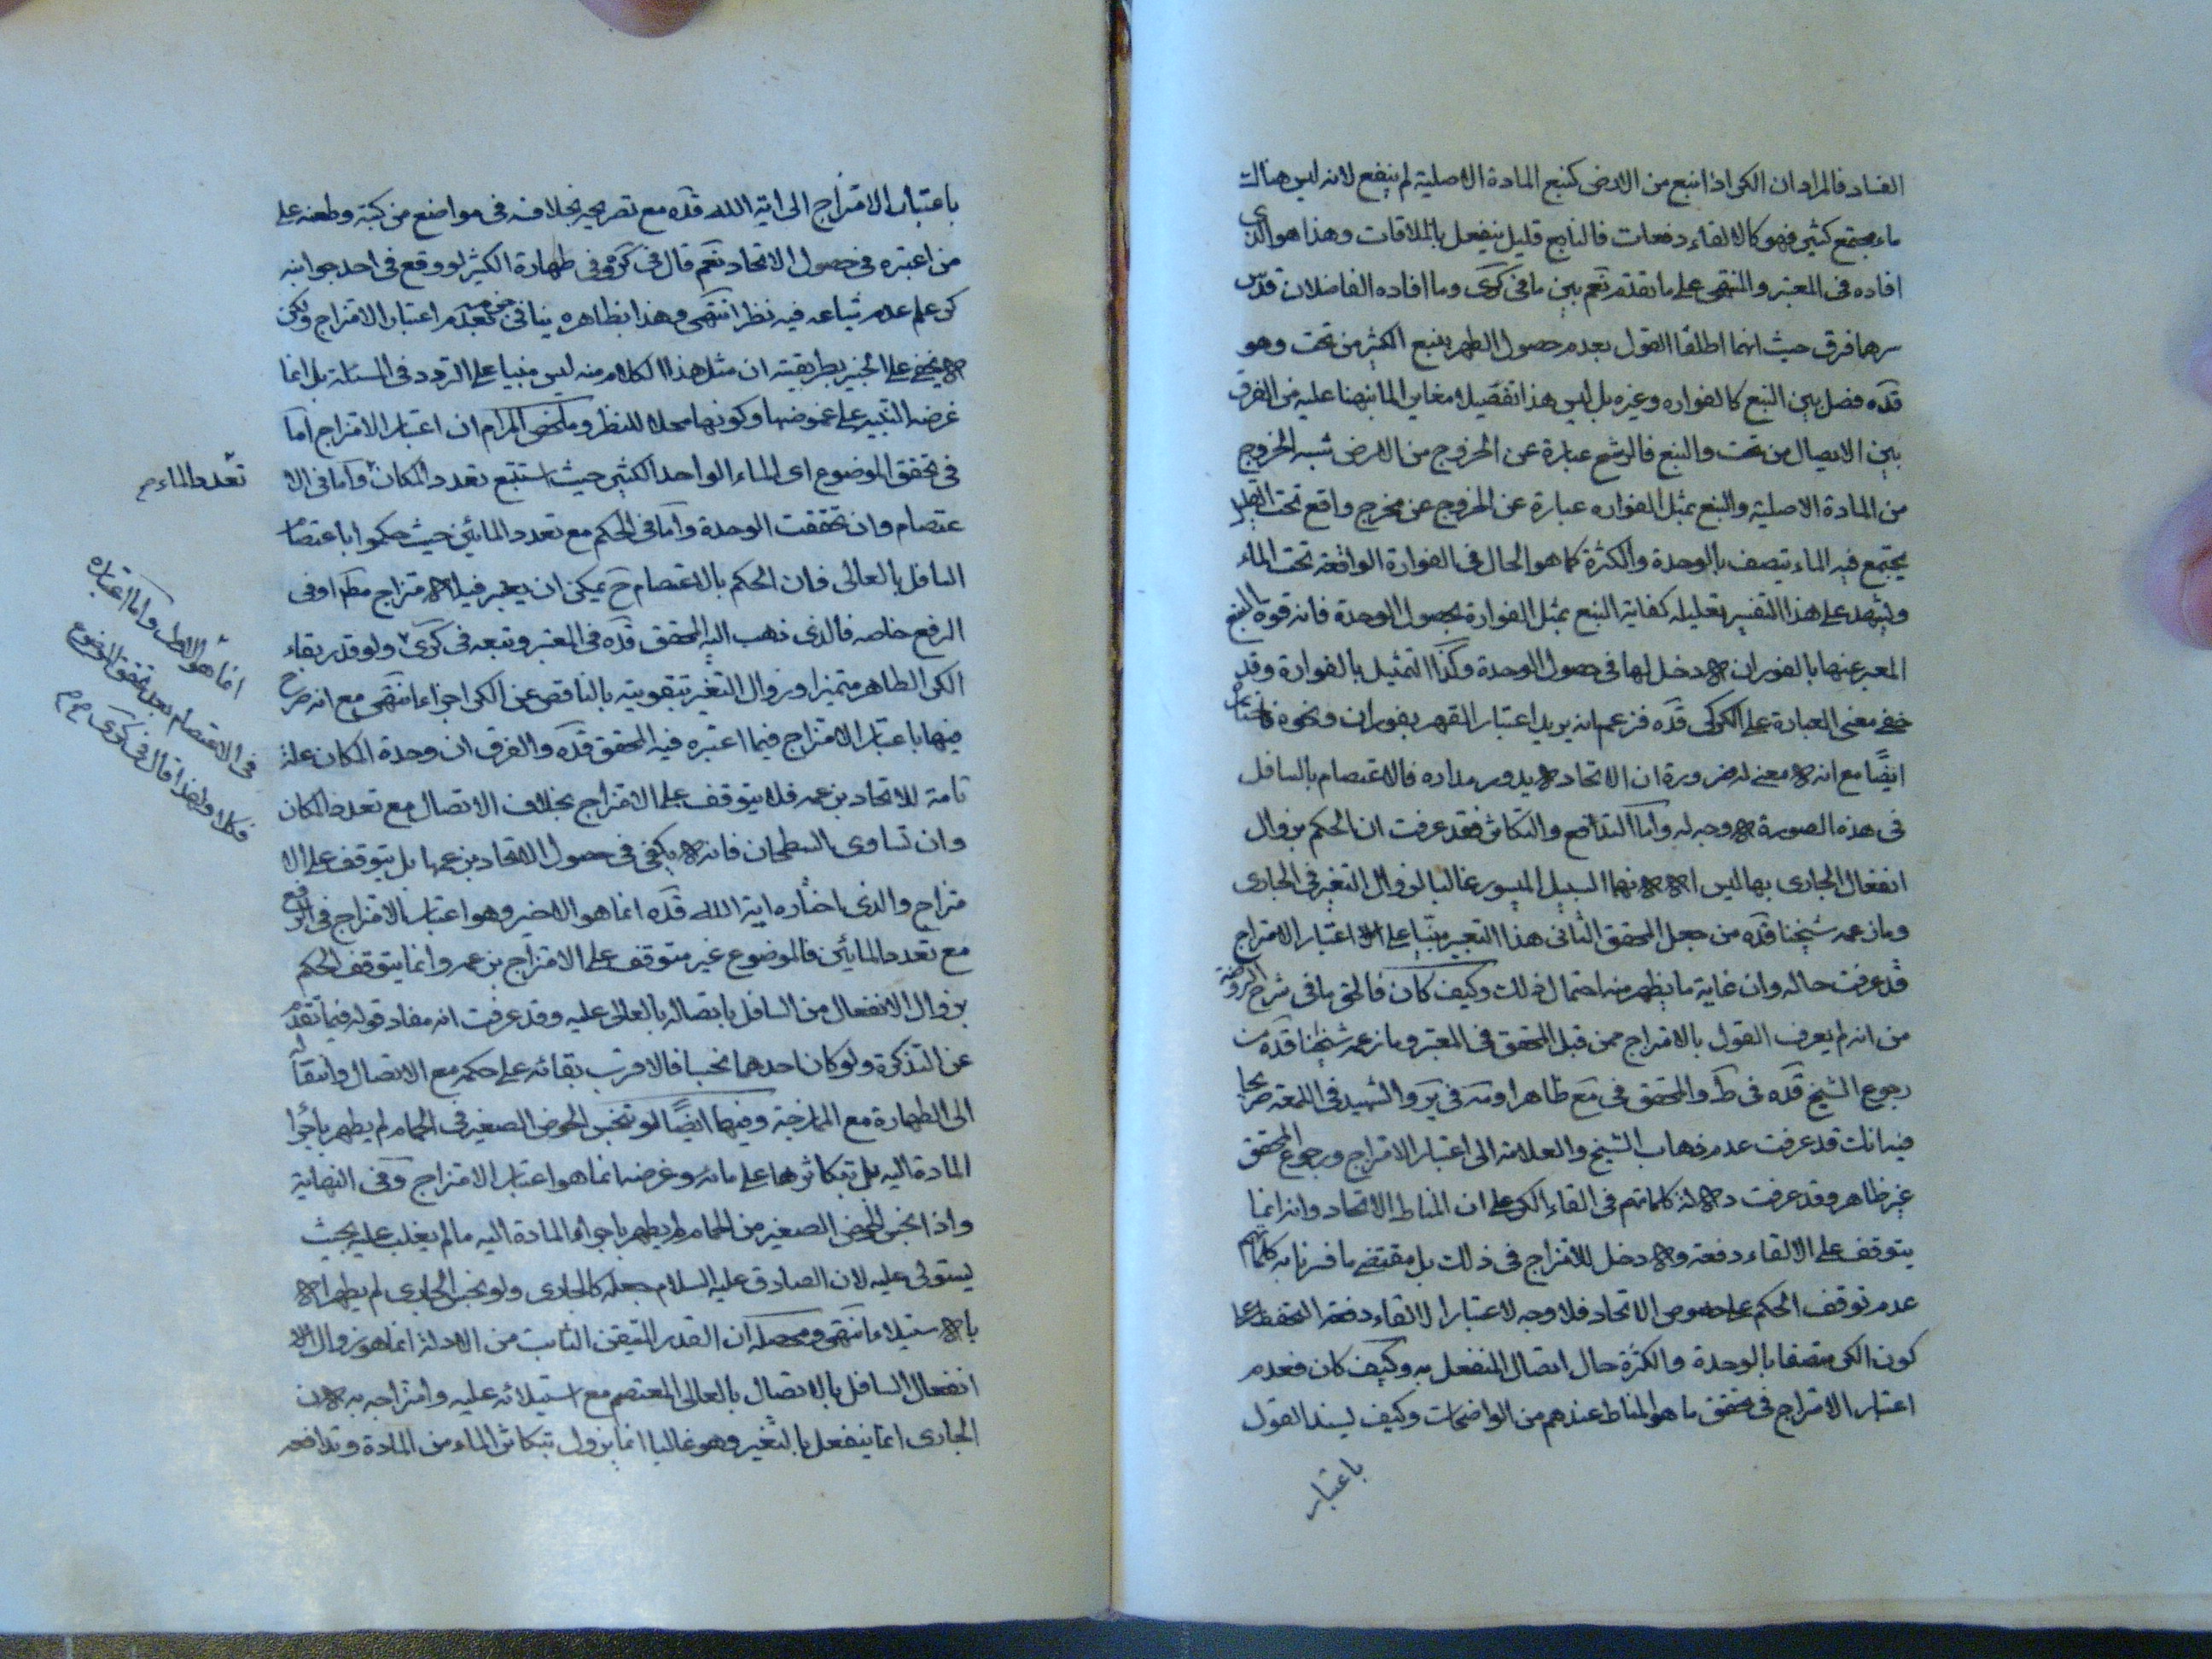 الفساد فالمراد ان الكر اذا نبع من الارض كنبع المادة الاصلية لم ينفع لانه ليس هناك
ماء مجتمع كثير فهو كالالقاء دفعات فالنابع قليل ينفعل بالملاقات وهذا هو الذى
افاده فى المعتبر والمنتهى على ما تقدم نعم بين ما فى كرى وما افاده الفاضلان قدس
سرهما فرق حيث انهما اطلقا القول بعدم حصول الطهر بنبع الكثير من تحت وهو
قده فصل بين النبع كالفواره وغيره بل ليس هذا تفصيلا مغايرا لما نبهنا عليه من الفرق
بين الاتصال من تحت والنبع فالرشح عبارة عن الخروج من الارض شبه الخروج
من المادة الاصلية والنبع بمثل الفواره عبارة عن الخروج عن مخرج واقع تحت
يجتمع فيه الماء يتصف بالوحدة والكثرة كما هو الحال فى الفوارة الواقعة تحت الماء
ويشهد على هذا التفسير تعليله كفاية النبع بمثل الفوارة بحصول الوحدة فانه قوة النبع
المعبر عنها بالفوران لا دخل لها فى حصول الوحدة وكذا التمثيل بالفوارة وقد
خفى معنى العبارة على الكركى قده فزعم انه يريد اعتبار القهر بفوران ونحوه
ايضًا مع انه لا معنى له ضرورة ان الاتحاد لا يدور مداره فالاعتصام بالسافل
فى هذه الصورة لا وجه له واما التدافع والتكاثر فقد عرفت ان الحكم بزوال
انفعال الجارى بها ليس الا لانهما السبيل الميسور غالبا لزوال التغير فى الجارى
وما زعمه شيخنا قده من جعل المحقق الثانى هذا التعبير مبنيا على اعتبار الامتزاج
قد عرفت حاله وان غاية ما يظهر منه احتمال ذلك وكيف كان فالحق ما فى شرح الروضة
من انه لم يعرف القول بالامتزاج ممن قبل المحقق فى المعتبر وما زعمه شيخنا قده من
رجوع الشيخ قده فى ط والمحقق فى مع ظاهرا ومه فى ير والشهيد فى اللمعة صريحا
فيه انك قد عرفت عدم ذهاب الشيخ والعلامة الى اعتبار الامتزاج ورجوع المحقق
غير ظاهر وقد عرفت دلالة كلماتهم فى القاء الكر على ان المناط الاتحاد وانه انما
يتوقف على الالقاء دفعة ولا دخل للامتزاج فى ذلك بل مقتضى ما فسرنا به كلماتهم
عدم توقف الحكم على خصوص الاتحاد فلا وجه لاعتبار الالقاء دفعة
كون الكر متصفا بالوحدة والكثرة حال اتصال المنفعل به وكيف كان فعدم
اعتبار الامتزاج فى تحقق ما هو المناط عندهم من الواضحات وكيف يسند القول
باعتبار
باعتبار الامتزاج الى اية الله قده مع تصريحه بخلافه فى مواضع من كتبه وطعنه على
من اعتبره فى حصول الاتحاد نعم قال فى كره وفى طهارة الكثير لو وقع فى احد جوانبه
كر علم عدم شياعه فيه نظر انتهى وهذا بظاهره ينافى جزمه بعدم اعتبار الامتزاج ولكن
لا يخفى على الخبير بطريقته ان مثل هذا الكلام منه ليس مبنيا على التردد فى المسئلة بل انما
غرضه التنبيه على غموضها وكونها محلا للنظر وملخص المرام ان اعتبار الامتزاج اما
فى تحقق الموضوع اى الماء الواحد الكثير حيث استتبع تعدد المكان واما فى الا
تعدد الماء م
عتصام وان تحققت الوحدة واما فى الحكم مع تعدد المائين حيث حكموا باعتصام
السافل بالعالى فان الحكم بالاعتصام ح يمكن ان يعتبر فيه الامتزاج مطلقا او فى
الرفع خاصه فالذى ذهب اليه المحقق قده فى المعتبر وتبعه فى كرى ولو قدر بقاء
الكر الطاهر متميزا وزوال التغير بتقويته بالناقص عن الكر اجزاء انتهى مع انه صرح
انما هو الاول واما اعتباره
فى الاعتصام بعد تحقق الموضوع
فكلا ولهذا قال فى كرى م م
فيها باعتبار الامتزاج فيما اعتبره فيه المحقق قده والفرق ان وحدة المكان علة
تامة للاتحاد بزعمه فلا يتوقف على الامتزاج بخلاف الاتصال مع تعدد المكان
وان تساوى السطحان فانه لا يكفى فى حصول الاتحاد بزعمها بل يتوقف على الا
متزاج والذى اختاره اية الله قده انما هو الاخير وهو اعتبار الامتزاج فى الرفع
مع تعدد المائين فالموضوع غير متوقف على الامتزاج بزعمه وانما يتوقف الحكم
بزوال الانفعال من السافل باتصاله بالعالى عليه وقد عرفت انه مفاد قوله فيما تقدم
عن التذكرة ولو كان احدهما نجسا فالاقرب بقائه على حكمه مع الاتصال وانتقاله
الى الطهارة مع الممازجة وفيها ايضًا لو تنجس الحوض الصغير فى الحمام لم يطهر باجراء
المادة اليه بل بتكاثرها على مائه وغرضه انما هو اعتبار الامتزاج وفى النهاية
واذا نجس الحوض الصغير من الحمام لم يطهر باجراء المادة اليه ما لم يغلب عليه بحيث
يستولى عليه لان الصادق عليه السلام جعله كالجارى ولو نجس الجارى لم يطهر الا
بالاستيلاء انتهى ومحصله ان القدر المتيقن الثابت من الادلة انما هو زوال الا
انفعال السافل بالاتصال بالعالى المعتصم مع استيلائه عليه وامتزاجه به لان
الجارى انما ينفعل بالتغير وهو غالبا انما يزول بتكاثر الماء من المادة وتدافعه